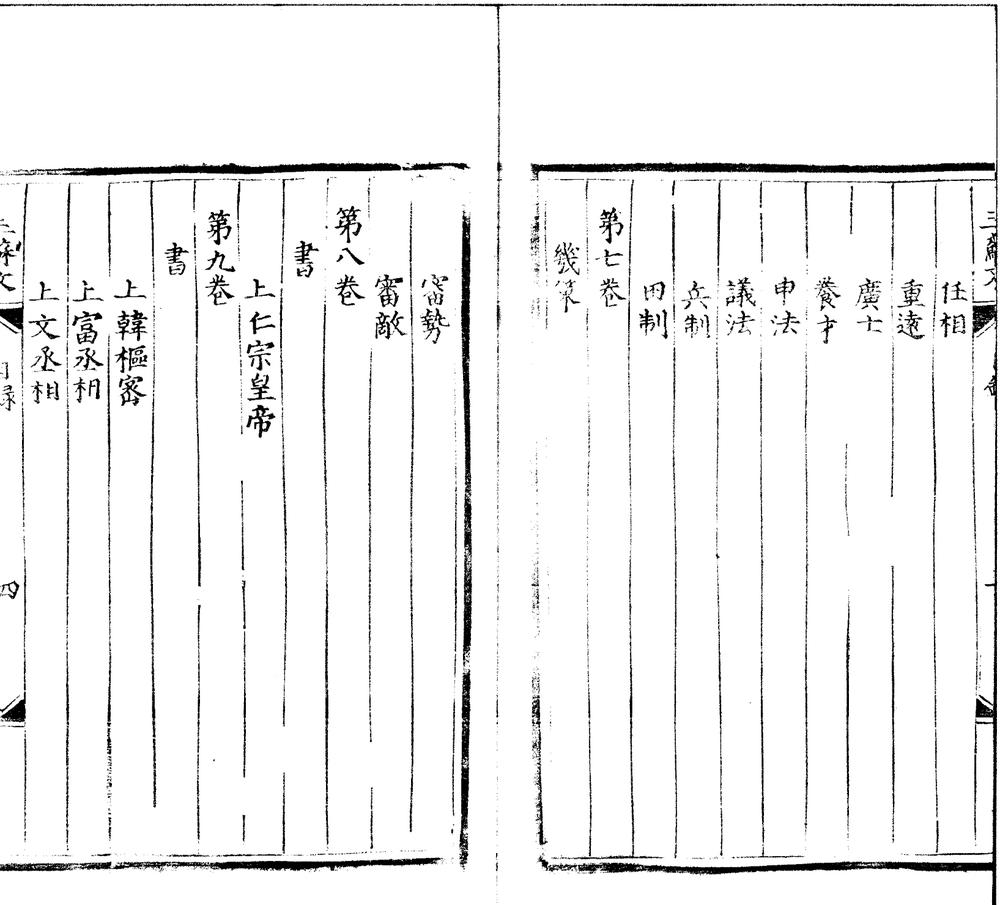 任相
重遠
廣士
養才
申法
議法
兵制
田制
第七卷
幾策
審勢
審敵
第八卷
書
上仁宗皇帝
第九卷
書
上韓樞密
上富丞相
上文丞相
四